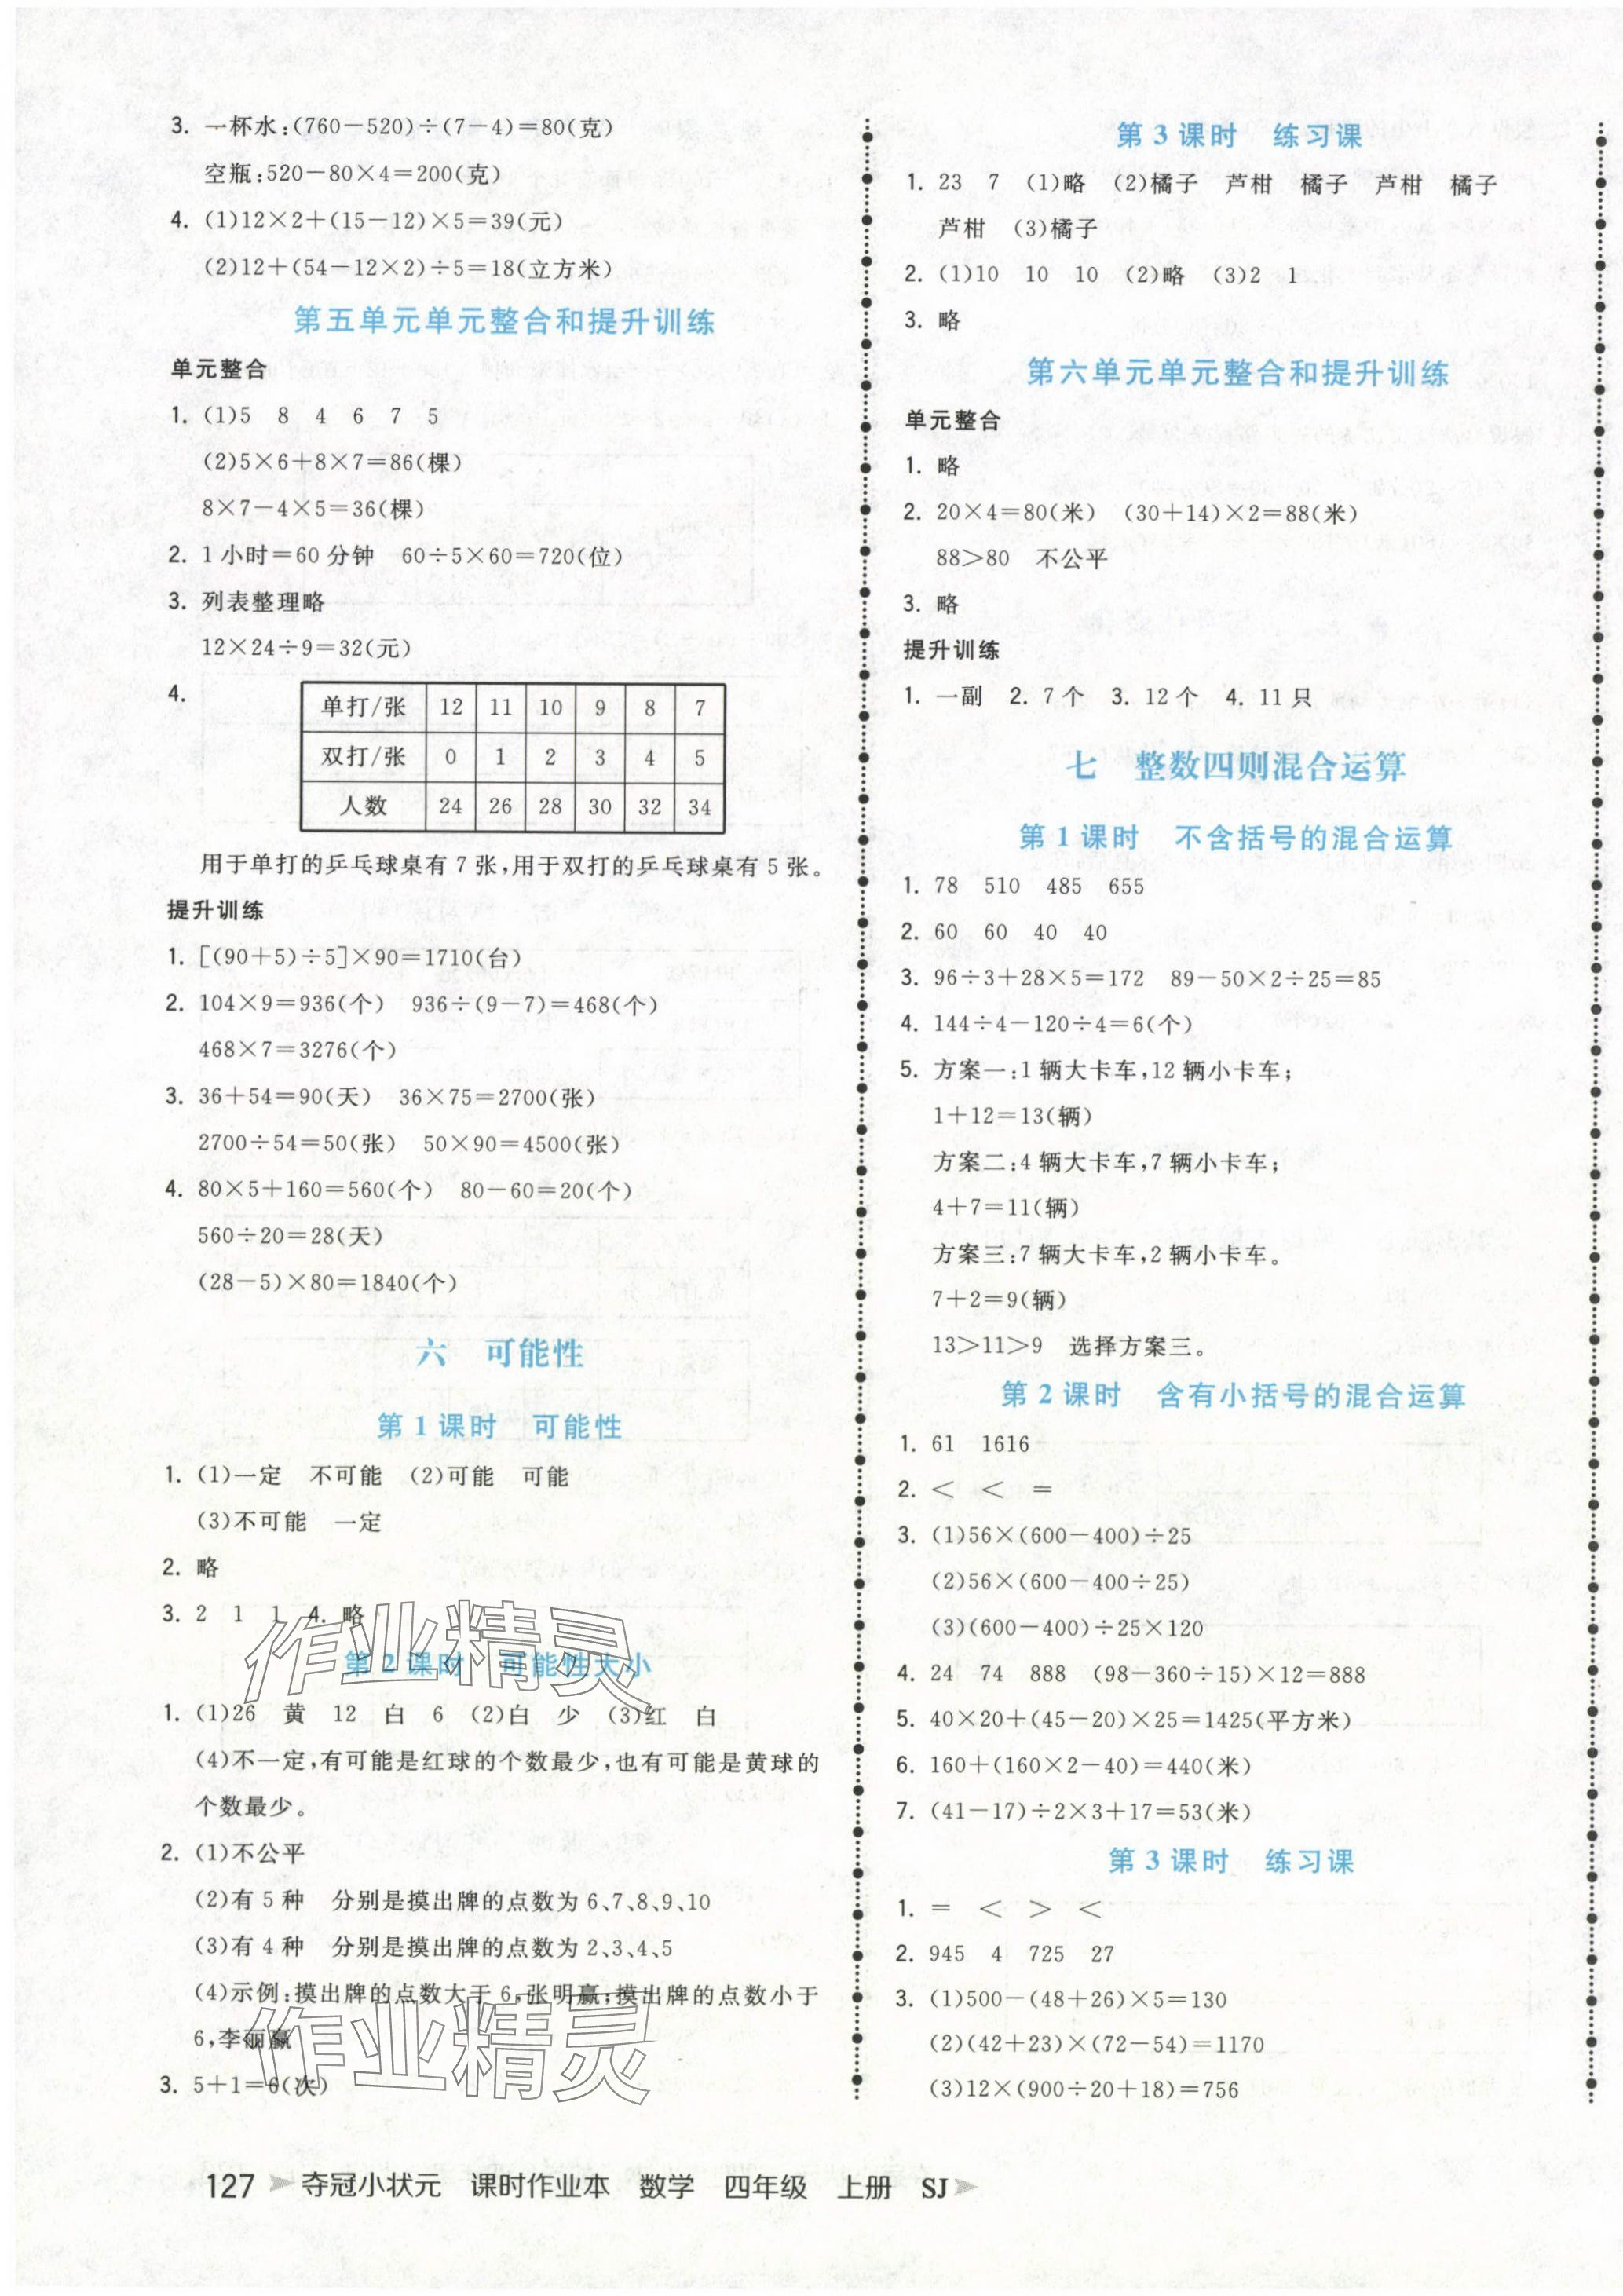 3. 一杯水:(760－520)÷(7－4)＝80(克)
空瓶:520－80×4＝200(克)
4. (1)12×2＋(15－12)×5＝39(元)
(2)12＋(54－12×2)÷5＝18(立方米)
第五单元单元整合和提升训练
单元整合
1. (1)5 8 4 6 7 5
(2)5×6＋8×7＝86(棵)
8×7－4×5＝36(棵)
2. 1小时＝60分钟 60÷5×60＝720(位)
3. 列表整理略
12×24÷9＝32(元)
4.
单打/张 12 11 10 9 8 7
双打/张 0 1 2 3 4 5
人数 24 26 28 30 32 34
用于单打的乒乓球桌有7张,用于双打的乒乓球桌有5张。
提升训练
1. [(90＋5)÷5]×90＝1710(台)
2. 104×9＝936(个) 936÷(9－7)＝468(个)
468×7＝3276(个)
3. 36＋54＝90(天) 36×75＝2700(张)
2700÷54＝50(张) 50×90＝4500(张)
4. 80×5＋160＝560(个) 80－60＝20(个)
560÷20＝28(天)
(28－5)×80＝1840(个)
六 可能性
第1课时 可能性
1. (1)一定 不可能 (2)可能 可能
(3)不可能 一定
2. 略
3. 2 1 1 4. 略
第2课时 可能性大小
1. (1)26 黄 12 白 6 (2)白 少 (3)红 白
(4)不一定,有可能是红球的个数最少,也有可能是黄球的
个数最少。
2. (1)不公平
(2)有5种 分别是摸出牌的点数为6、7、8、9、10
(3)有4种 分别是摸出牌的点数为2、3、4、5
(4)示例:摸出牌的点数大于6,张明赢;摸出牌的点数小于
6,李丽赢
3. 5＋1＝6(次)
作业精灵
作业精灵
第3课时 练习课
1. 23 7 (1)略 (2)橘子 芦柑 橘子 芦柑 橘子
芦柑 (3)橘子
2. (1)10 10 10 (2)略 (3)2 1
3. 略
第六单元单元整合和提升训练
单元整合
1. 略
2. 20×4＝80(米) (30＋14)×2＝88(米)
88＞80 不公平
3. 略
提升训练
1. 一副 2. 7个 3. 12个 4. 11只
七 整数四则混合运算
第1课时 不含括号的混合运算
1. 78 510 485 655
2. 60 60 40 40
3. 96÷3＋28×5＝172 89－50×2÷25＝85
4. 144÷4－120÷4＝6(个)
5. 方案一:1辆大卡车,12辆小卡车;
1＋12＝13(辆)
方案二:4辆大卡车,7辆小卡车;
4＋7＝11(辆)
方案三:7辆大卡车,2辆小卡车。
7＋2＝9(辆)
13＞11＞9 选择方案三。
第2课时 含有小括号的混合运算
1. 61 1616
2. ＜ ＜ ＝
3. (1)56×(600－400)÷25
(2)56×(600－400÷25)
(3)(600－400)÷25×120
4. 24 74 888 (98－360÷15)×12＝888
5. 40×20＋(45－20)×25＝1425(平方米)
6. 160＋(160×2－40)＝440(米)
7. (41－17)÷2×3＋17＝53(米)
第3课时 练习课
1. ＝ ＜ ＞ ＜
2. 945 4 725 27
3. (1)500－(48＋26)×5＝130
(2)(42＋23)×(72－54)＝1170
(3)12×(900÷20＋18)＝756
127 夺冠小状元 课时作业本 数学 四年级 上册 SJ